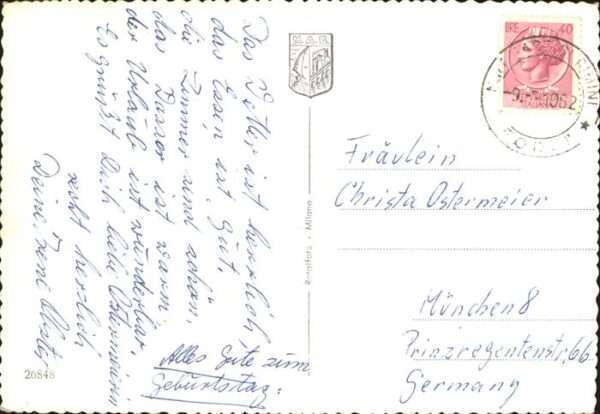 Das Wetter ist herrlich,
das Essen ist gut,
die Zimmer sind schön,
das Wasser ist warm
der Urlaub ist wunderbar.
Es grüßt Dich liebe Ostermeierin
recht herzlich
Deine Irene
Alles Gute zum
Geburtstag.
26848
KAR
Rotalfoto - Milano
LIRE 40
ITALIANA
1962
FORLI
Fräulein
Christa Ostermeier
München 8
Prinzregentenstr. 66
Germany